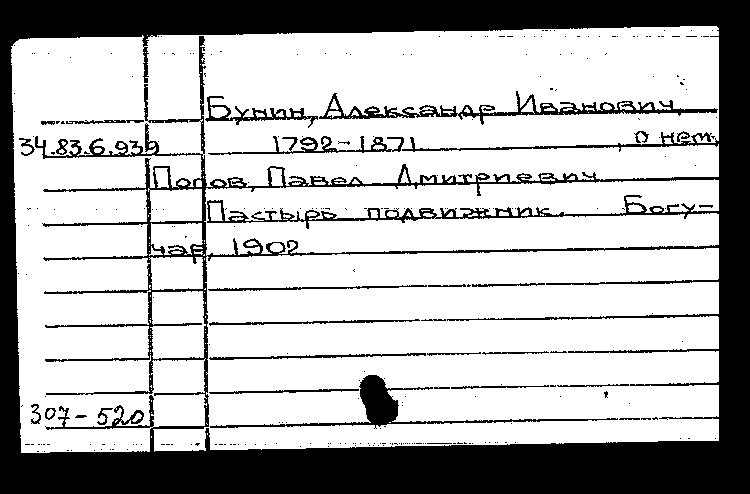 Бунин, Александр Иванович,
34.83.6.939 1792-1871 , о нем,
Попов, Павел Дмитриевич
Пастырь подвижник. Богу-
чар, 1902
307-520